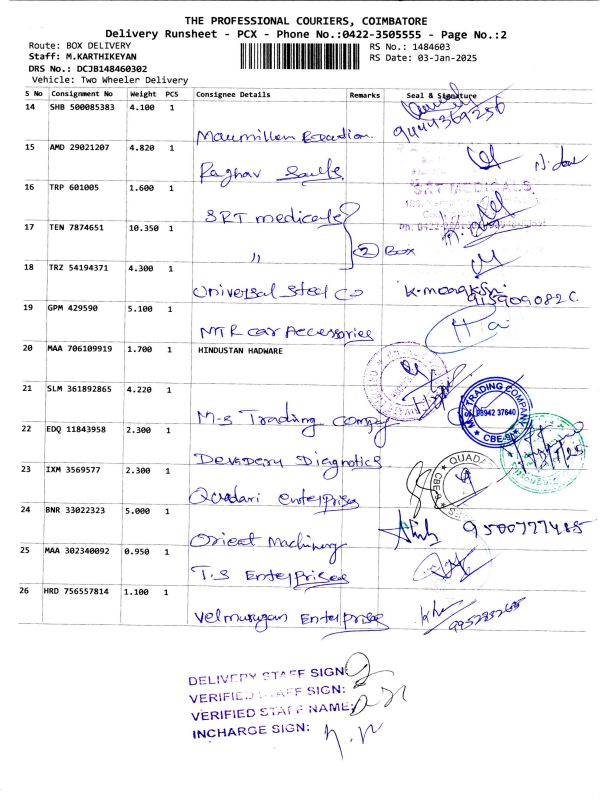 THE PROFESSIONAL COURIERS, COIMBATORE
Delivery Runsheet - PCX - Phone No.:0422-3505555 - Page No.:2
Route: BOX DELIVERY
RS No.: 1484603
Staff: M.KARTHIKEYAN
RS Date: 03-Jan-2025
DRS No.: DCJB148460302
Vehicle: Two Wheeler Delivery
S No Consignment No Weight PCS Consignee Details Remarks Seal & Signature
14 SHB 500085383 4.100 1
9444369256
15 AMD 29021207 4.820 1
Raghav
16 TRP 601005 1.600 1
SRT MEDICALS
SRT medicals
17 TEN 7874651 10.350 1
" 2 Box
18 TRZ 54194371 4.300 1
Universal Steel Co
19 GPM 429590 5.100 1
MTR car Accessories
20 MAA 706109919 1.700 1 HINDUSTAN HADWARE
21 SLM 361892865 4.220 1
M.S TRADING COMPANY
93942 37640
CBE-9
M.S Trading Compy
22 EDQ 11843958 2.300 1
Diagnotics
QUADA
CBE-9
23 IXM 3569577 2.300 1
Quadari enterprises
24 BNR 33022323 5.000 1
Orient Machinery
9500777485
25 MAA 302340092 0.950 1
T.S Enterprises
26 HRD 756557814 1.100 1
Velmurugan Enterprises
DELIVERY STAFF SIGN:
VERIFIED STAFF SIGN:
VERIFIED STAFF NAME:
INCHARGE SIGN: